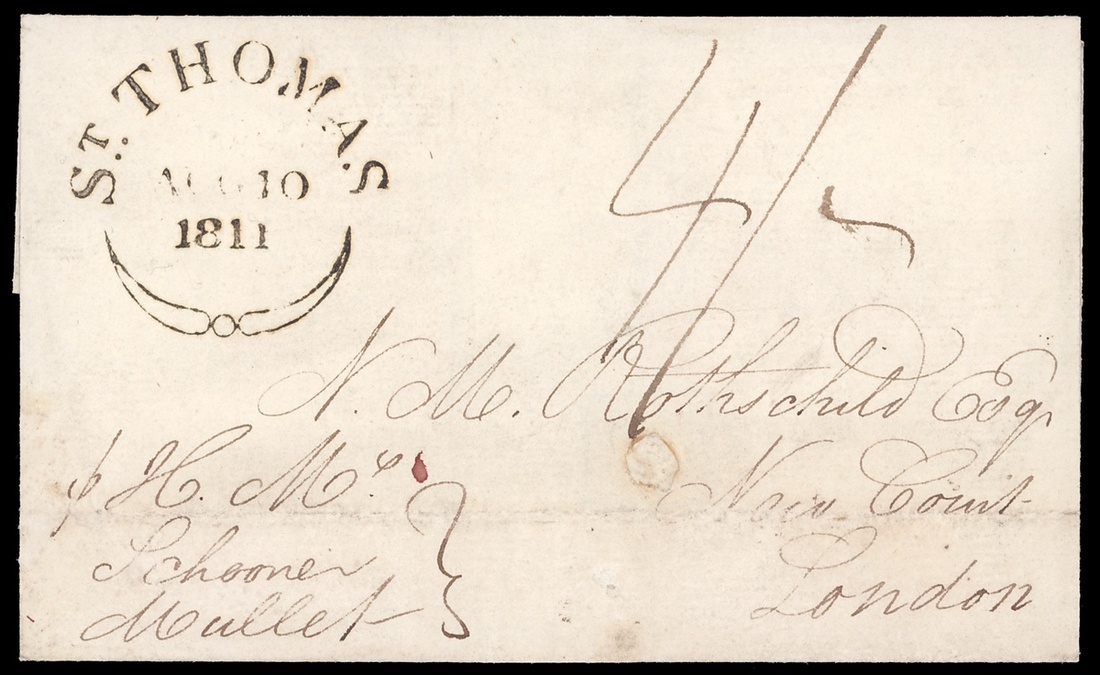 St. THOMAS
AUG 10
1811
4/-
N. M. Rothschild Esqr
New Court
London
p H. Ms
Schooner
Mullet